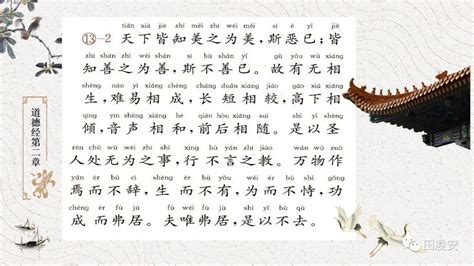 tiān xià jiē zhī měi zhī wéi měi sī è yǐ jiē
⑬-2 天下皆知美之为美，斯恶已；皆
zhī shàn zhī wéi shàn sī bú shàn yǐ gù yǒu wú xiāng
知善之为善，斯不善已。故有无相
shēng nán yì xiāng chéng cháng duǎn xiāng jiào gāo xià xiāng
生，难易相成，长短相较，高下相
qīng yīn shēng xiāng hè qián hòu xiāng suí shì yǐ shèng
倾，音声相和，前后相随。是以圣
rén chǔ wú wéi zhī shì xíng bù yán zhī jiào wàn wù zuò
人处无为之事，行不言之教。万物作
yān ér bù cí shēng ér bù yǒu wéi ér bú shì gōng
焉而不辞，生而不有，为而不恃，功
chéng ér fú jū fú wéi fú jū shì yǐ bú qù
成而弗居。夫唯弗居，是以不去。
道德经第二章
田凌安